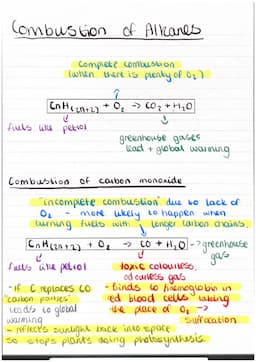 Combustion of Alkanes
complete combustion
(when there is plenty of O2)
CnH(2n+2) + O2 → CO2 + H2O
fuels like petrol
greenhouse gases
lead + global warming
Combustion of carbon monoxide
"incomplete combustion" due to lack of
O2 - more likely to happen when
burning fuels with longer carbon chains.
CnH(2n+2) + O2 → CO + H2O → greenhouse
gas
fuels like petrol
toxic colourless,
odourless gas
- if C replaces CO
"carbon particles"
leads to global
warming
- reflects sunlight back into space
so stops plants doing photosynthesis.
- binds to haemoglobin in
red blood cells taking
the place of O2 →
suffocation